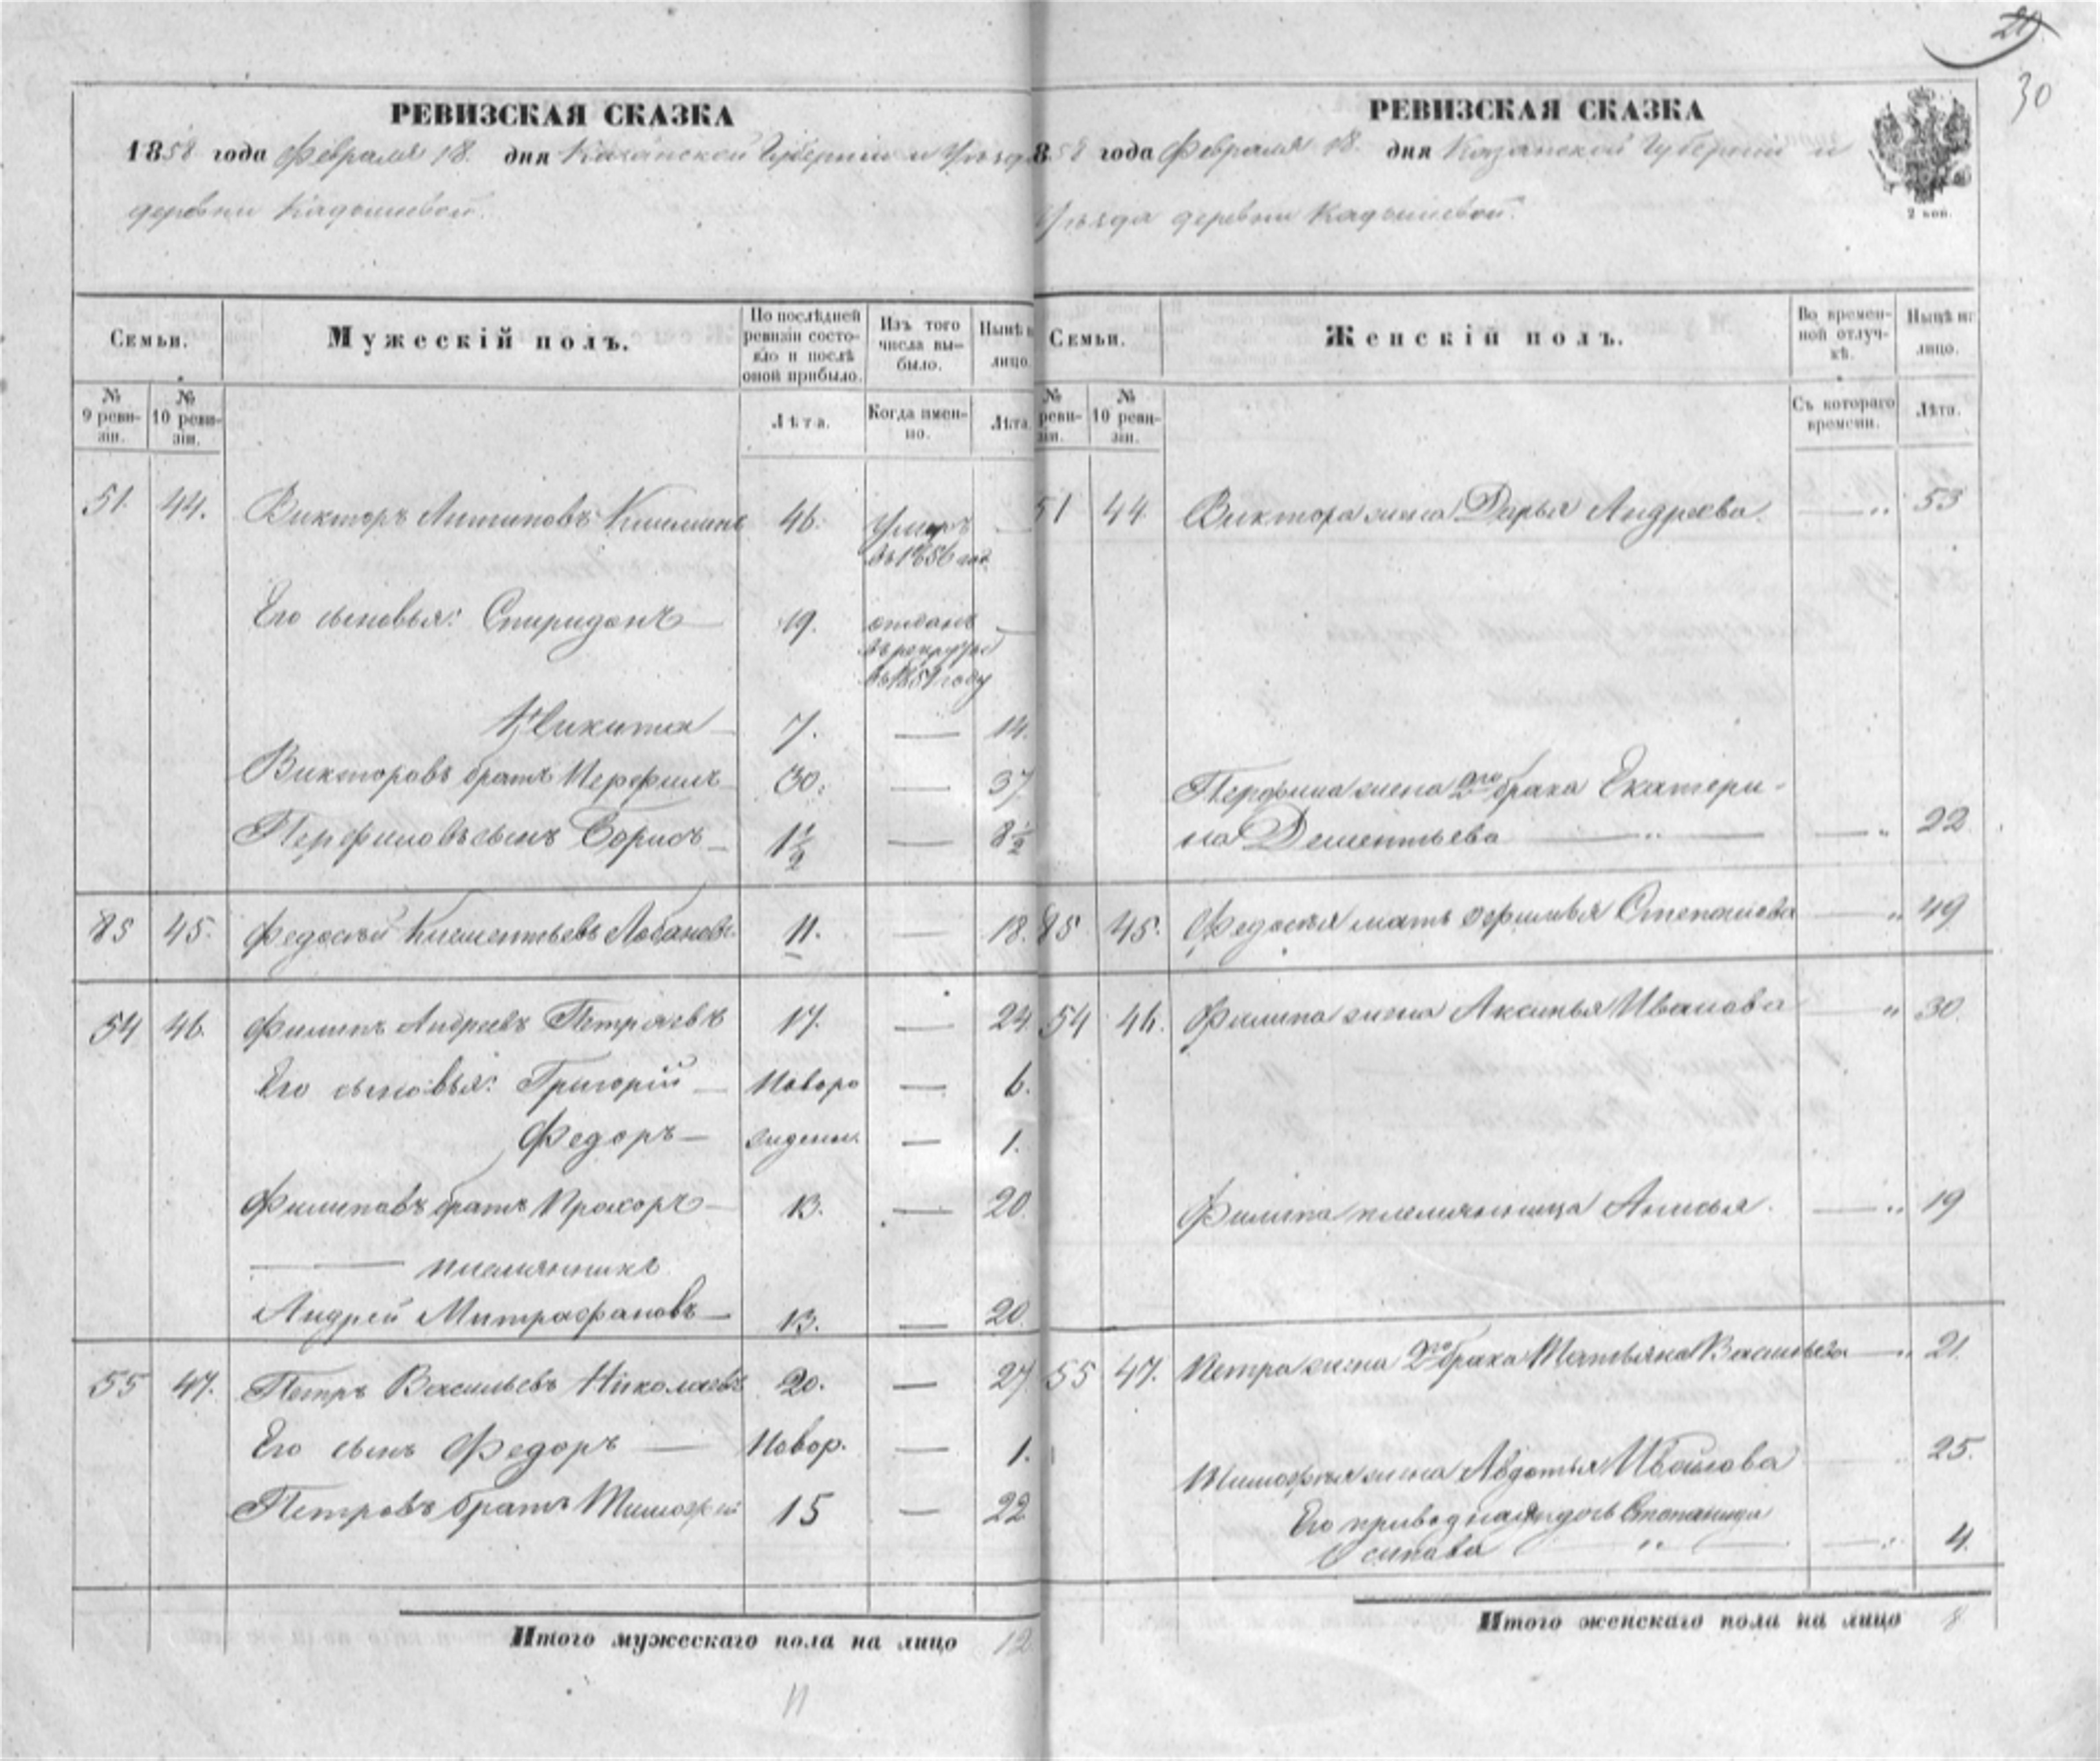 29
30
РЕВИЗСКАЯ СКАЗКА
1858 года Февраля 18. дня Казанской Губернiи и Уѣзда
деревни Кадышевой.
Семьи.
Мужескiй полъ.
По послѣдней ревизiи состо-
яло и послѣ
оной прибыло.
Изъ того
числа вы-
было.
Нынѣ н
лицо.
№
9 реви-
зiи.
№
10 реви-
зiи.
Лѣта.
Когда имен-
но.
Лѣта.
51. 44. Викторъ Антиповъ 46. Умеръ —
въ 1856 год.
Его сыновья: Спиридонъ — 19. отданъ —
въ рекруты
въ 1854 году
Никита — 7. — 14.
Викторовъ братъ Перфилъ — 30. — 37.
Перфиловъ сынъ Борисъ — 1½ — 8½
85 45. Федосѣй Климентьевъ Лобановъ. 11. — 18.
54 46. Филипъ Андреевъ Петряевъ 17. — 24
Его сыновья: Григорiй — Новоро — 6.
Федоръ — жденн. — 1.
Филиповъ братъ Прохоръ — 13. — 20.
— племянникъ
Андрей Митрофановъ — 13. — 20.
55 47. Петръ Васильевъ Николаевъ 20. — 27
Его сынъ Федоръ — Новор. — 1.
Петровъ братъ Тимофей 15 — 22
Итого мужескаго пола на лицо 12
11
РЕВИЗСКАЯ СКАЗКА
858 года Февраля 18. дня Казанской Губернiи и
Уѣзда деревни Кадышевой.
2 коп.
Семьи.
Женскiй полъ.
Во времен-
ной отлуч-
кѣ.
Нынѣ на
лицо.
№
реви-
зiи.
№
10 реви-
зiи.
Съ котораго
времени.
Лѣта.
51 44 Виктора жена Дарья Андреева. — „ 53
Перфила жена 2го брака Екатери-
на Дементьева — „ — — „ 22
85 45. Федосѣя мать Офимья Степанова — „ 49
54 46. Филипа жена Аксинья Иванова — „ 30.
Филипа племянница Анисья. — „ 19
55 47. Петра жена 2го брака Татьяна Васильева — „ 21.
Тимофея жена Авдотья Иванова — „ 25.
Его приводная дочь Степанида
Осипова „ — — „ 4.
Итого женскаго пола на лицо 8